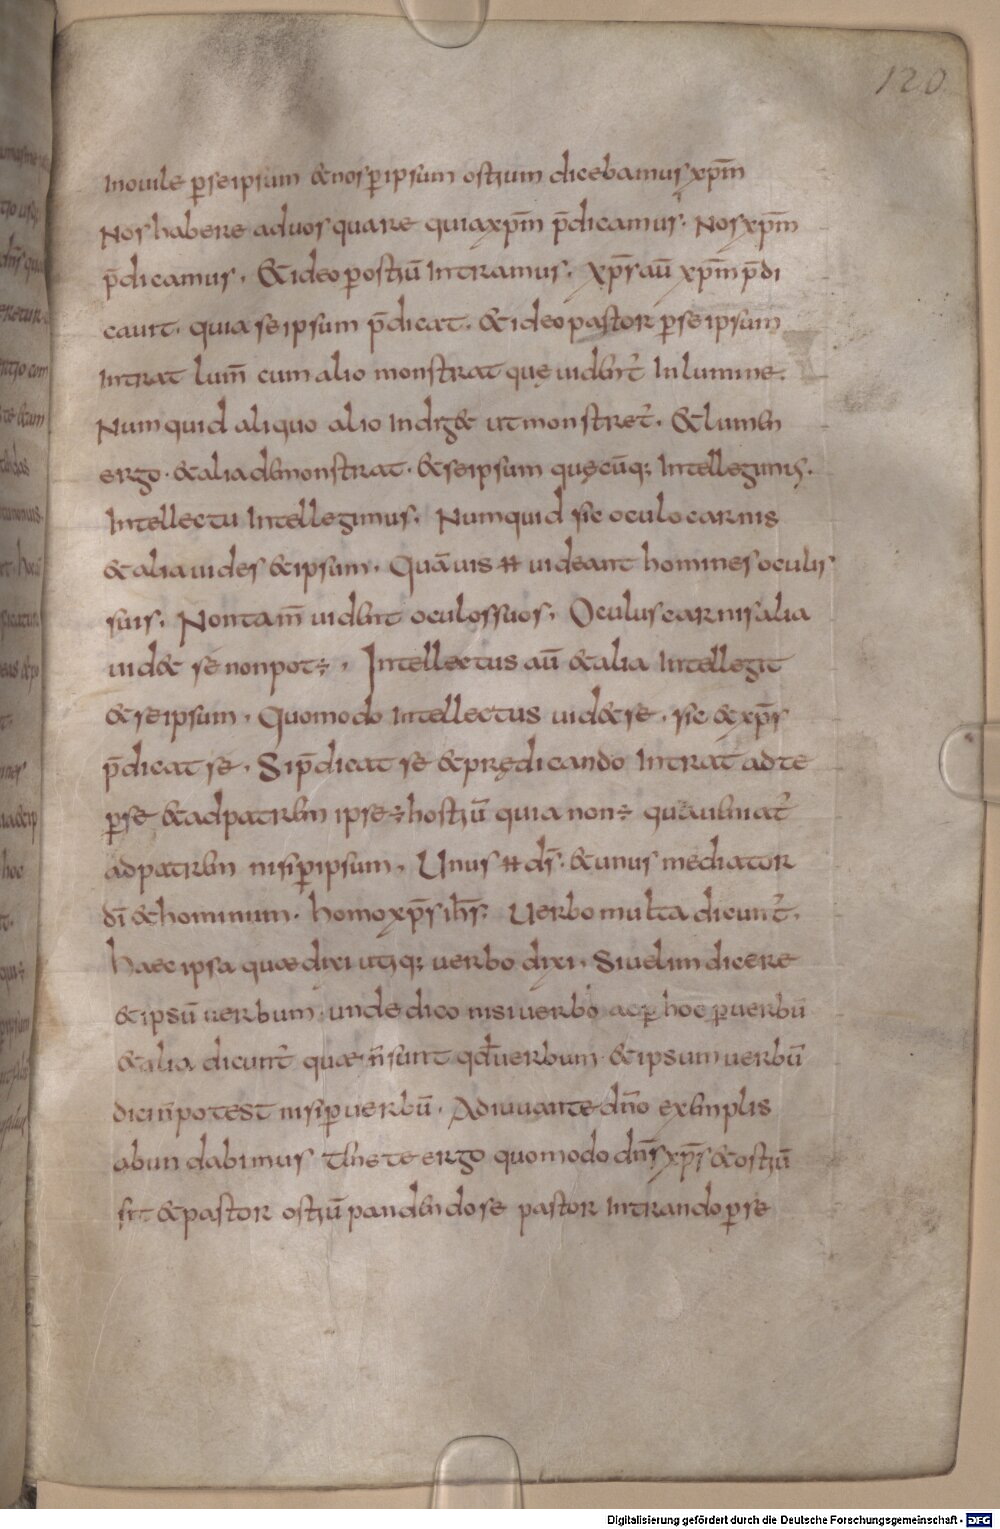 120
Inouile p̄seipsum &nosp̄ipsum ostium dicebamus xpm̄
Nos habere aduos quare quiaxpm̄ p̄dicamus. Nosxpm̄
p̄dicamus. &ideo p̄ostiū Intramus. xp̄s aū xpm̄ p̄di
cauit. quia seipsum p̄dicat. &ideo pastor p̄seipsum
Intrat lum̄ cum alio monstrat quę uident̄ Inlumine.
Numquid aliquo alio Indig& utmonstret̄. &lumen
ergo. &alia demonstrat. &seipsum quęcūq; Intellegimus.
Intellectu Intellegimus. Numquid sic oculo carnis
&alia uides &ipsum. Quāuis ++ uideant homines oculis
suis. Nontam̄ uident oculossuos. Oculus carnis alia
uid& se nonpot÷. Intellectus aū &alia Intellegit
&seipsum. Quomodo Intellectus uid&se. sic &xp̄s
p̄dicat se. Sip̄dicat se &prędicando Intrat adte
p̄se &adpatrem ipse÷hostiū quia non÷ quāueniat̄
adpatrem nisip̄ipsum. Unus ++ ds̄. &unus mediator
dī &hominum. homoxp̄s ihs̄. Uerbo multa dicunt̄.
haec ipsa quae dixi utiq; uerbo dixi. Siuelim dicere
&ipsū uerbum. unde dico nisi uerbo acp̄ hoc p̄uerbū
&alia dicunt̄ quae n̄sunt qd̄uerbum &ipsum uerbū
dicin̄potest nisip̄uerbū. Adiuuante dn̄o exemplis
abundabimus tenete ergo quomodo dn̄sxp̄s &ostiū
sit &pastor ostiū pandendose pastor Intrandop̄se
Digitalisierung gefördert durch die Deutsche Forschungsgemeinschaft - DFG